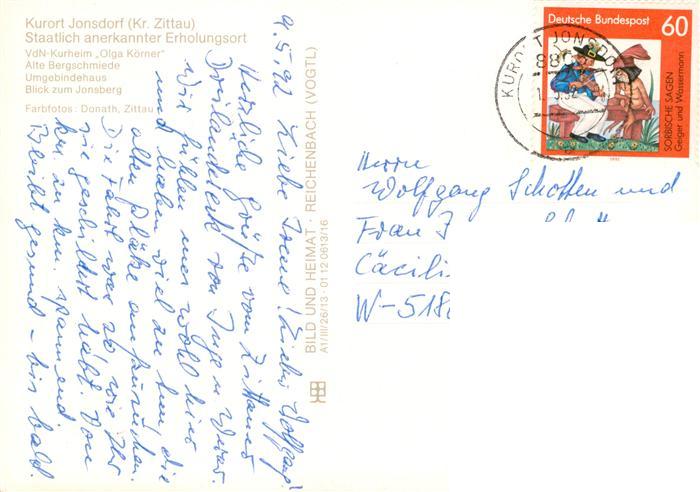 Kurort Jonsdorf (Kr. Zittau)
Staatlich anerkannter Erholungsort
VdN-Kurheim „Olga Körner“
Alte Bergschmiede
Umgebindehaus
Blick zum Jonsberg
Farbfotos: Donath, Zittau
9.5.92 Liebe Irene! Lieber Wolfgang!
Herzliche Grüße vom Zittauer
Dreiländereck von Inge u Werner.
Wir fühlen uns wohl hier
und haben viel zu tun, die
alten Plätze aufzusuchen.
Die Fahrt war so wie Ihr
sie geschildert habt. Von
km zu km. spannend.
Bleibt gesund – bis bald.
BILD UND HEIMAT · REICHENBACH (VOGTL)
A1/III/26/13 · 01 12 0613/16
Deutsche Bundespost 60
SORBISCHE SAGEN
Geiger und Wassermann
1992
KURORT JONSDORF
Herrn
Wolfgang Schotten und
Frau
Cäcili
W-518